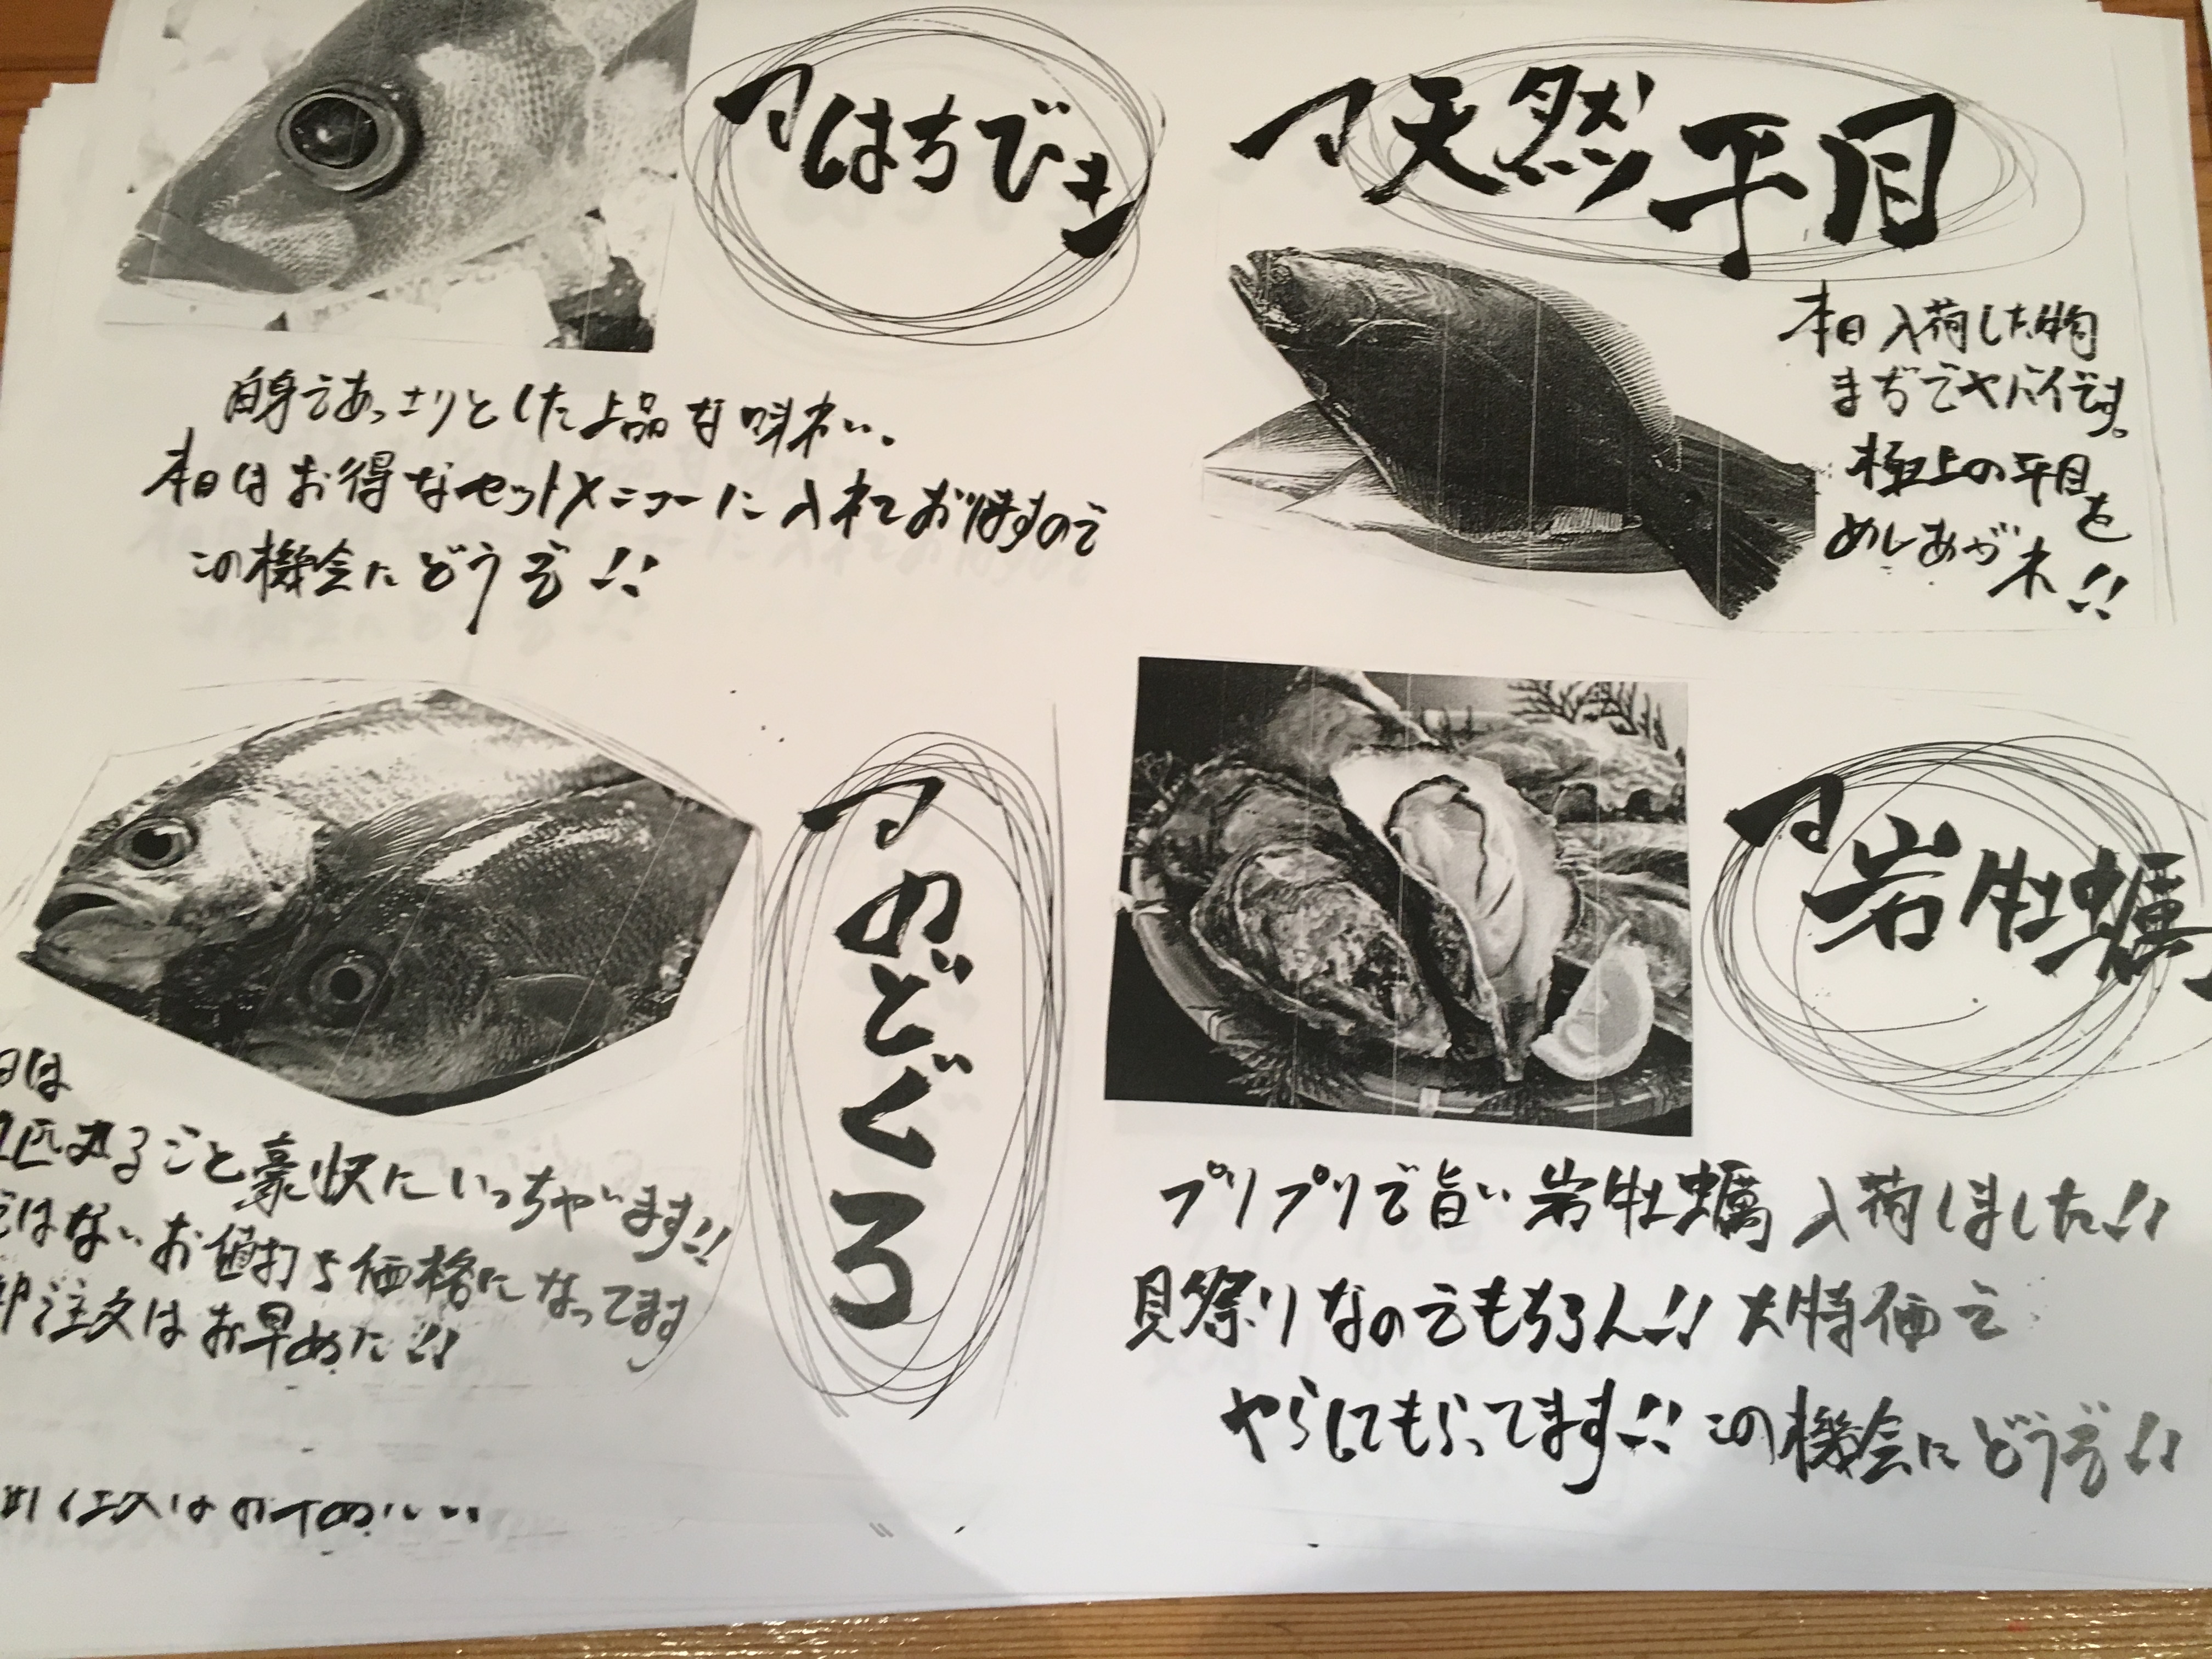 「はちびき」
白身であっさりとした上品な味わい。
本日はお得なセットメニューに入れておりますので
この機会にどうぞ!!
「天然平目
本日入荷した物
まぢでヤバイです。
極上の平目を
めしあがれ!!
「のどぐろ
日は
1匹まるごと豪快にいっちゃいます!!
ではないお値打ち価格になってます
注文はお早めに!!
「岩牡蠣」
プリプリで旨い岩牡蠣入荷しました!!
貝祭りなのでもちろん!!大特価で
やらしてもらってます!!この機会にどうぞ!!